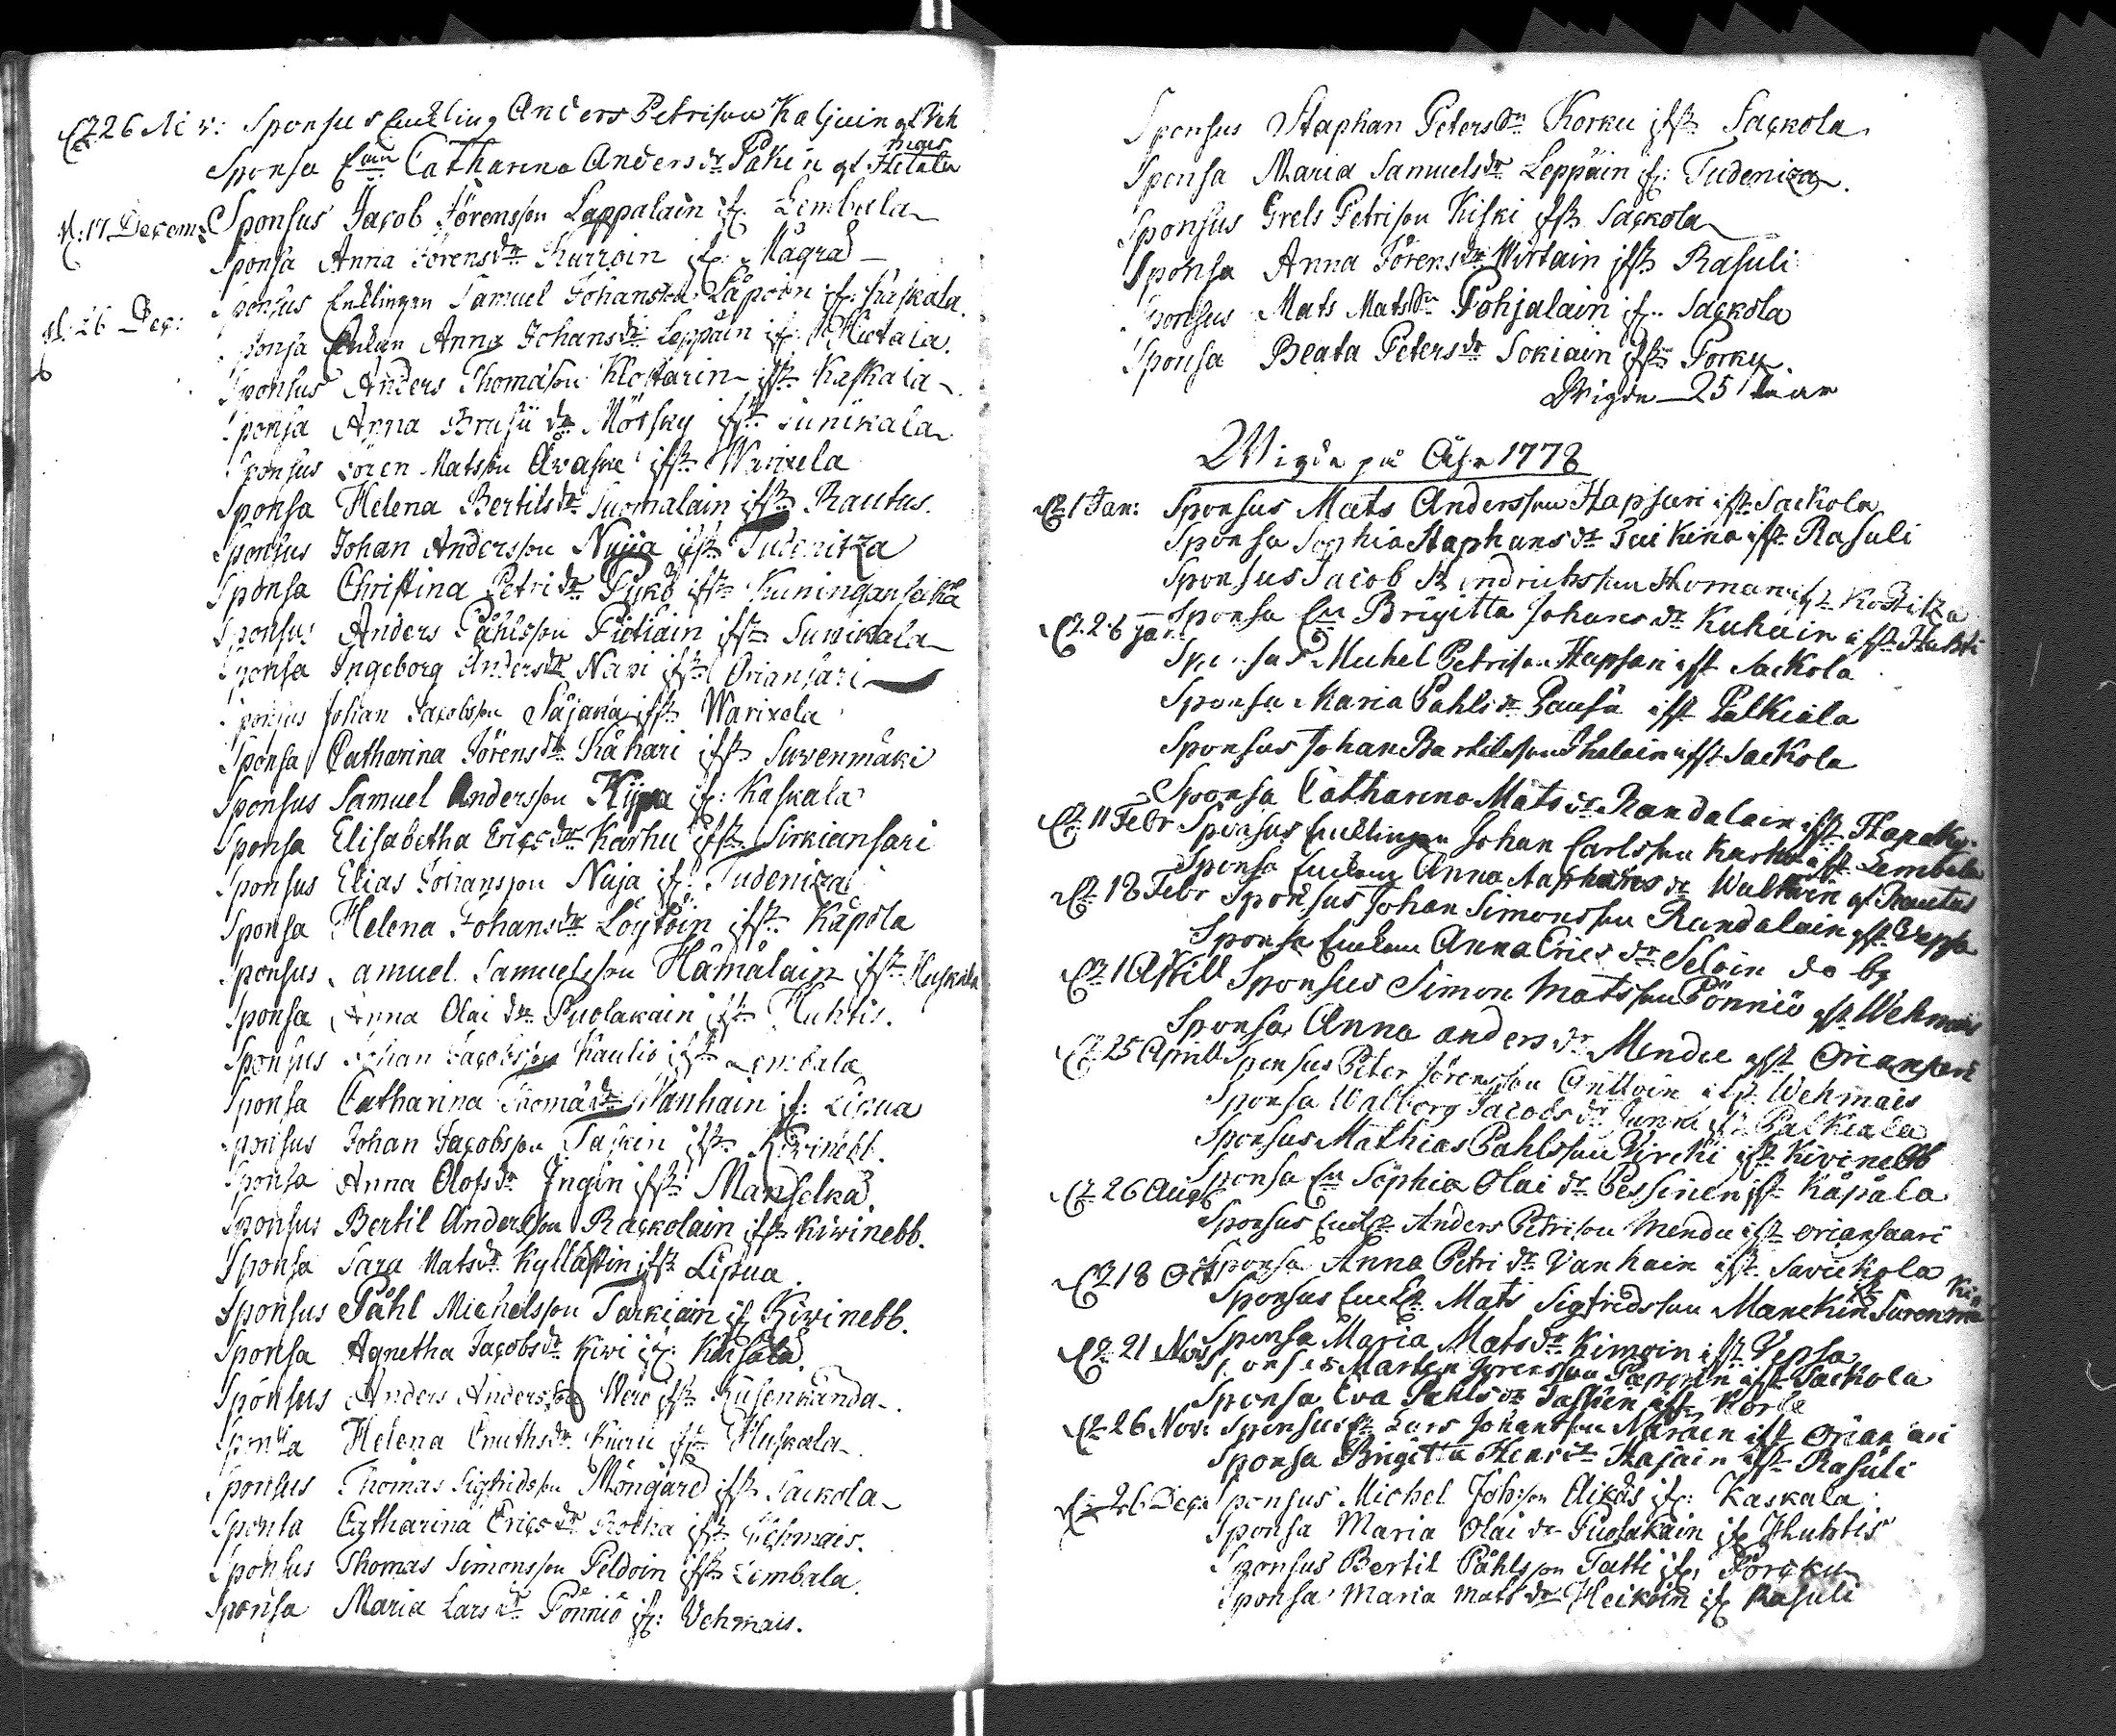 d. 26 Nov: Sponsus Enkling Anders Petrisson Kaljuin af Veh
mais
Sponsa Enkan Catharina Anders dr Påkin af Hatala
d: 17 Decem: Sponsus Jacob Jörensson Lappalain if. Lembala
Sponsa Anna Jörens dr Kurroin if. Mägrä
d: 26 Dec: Sponsus Enklingen Samuel Johansson Läpoin if: Kaskala
Sponsa Enkan Anna Johans dr Leppäin if:
Sponsus Anders Thomasson Klostarin ifrån Kaskala
Sponsa Anna dr Mötsky ifrån Sunikala
Sponsus Jören Matsson Awaske ifrån Warixela
Sponsa Helena Bertils dr Suomalain ifrån Rautus.
Sponsus Johan Andersson Nuija ifrån Tudenitza
Sponsa Christina Petri dr Pykö ifrån Kuninganseika
Sponsus Anders Påhlsson Piotiain ifrån Sunikala
Sponsa Ingeborg Anders dr Nari ifrån Oriansari
Sponsus Johan Jacobsson Säjänä ifrån Warixela
Sponsa Catharina Jörens dr Kähäri ifrån Suvenmäki
Sponsus Samuel Andersson Kippa if: Kaskala
Sponsa Elisabetha Erics dr Karhu ifrån Sirkiansari
Sponsus Elias Johansson Nuja if: Tudeniza
Sponsa Helena Johans dr Löytöin ifrån Käpölä
Sponsus Samuel Samuelsson Hämäläin ifrån Huskala
Sponsa Anna Olai dr Puolakain ifrån Huhtis.
Sponsus Johan Jacobsson Kaulio ifrån Lembala
Sponsa Catharina Thomæ dr Wanhain if: Lipua
Sponsus Johan Jacobsson Taskin ifrån Kiwinebb.
Sponsa Anna Olofs dr Ingin ifrån Manselkä.
Sponsus Bertil Andersson Rackolain ifrån Kiwinebb.
Sponsa Sara Mats dr Kylläštin ifrån Lipua.
Sponsus Påhl Michelsson Tarkiain if Kiwinebb.
Sponsa Agnetha Jacobs dr Kiwi if: Kaskala.
Sponsus Anders Andersson Wero ifrån
Sponsa Helena Cnuths dr Kiuru ifrån Huskala
Sponsus Thomas Sigfridsson Möngäre ifrån Sackola
Sponsa Catharina Erics dr ifrån Vehmais.
Sponsus Thomas Simonsson Peldoin ifrån Lembala.
Sponsa Maria Lars dr Pönniö if: Vehmais.
Sponsus Staphan Petersson Korku ifrån Sackola
Sponsa Maria Samuels dr Leppäin if: Tudeniza.
Sponsus Grels Petrisson Kiski ifrån Sackola
Sponsa Anna Jörens dr Wirtain ifrån Rasuli
Sponsus Mats Matsson Pohjalain if.. Sackola
Sponsa Beata Peters dr Sokiain ifrån Porku.
Wigde 25 Paar
Wigde på Åhr 1778
d. 1 Jan: Sponsus Mats Andersson Hapsari ifr. Sackola
Sponsa Sophia Staphans dr Paikina ifr. Rasuli
Sponsus Jacob Hindrichsson Homan ifr. Kostitza
Sponsa En Brigitta Johans dr Kuhain ifr. Huhti
d. 26 Jan: Sponsus Michel Petrisson Hapsari ifr. Sackola
Sponsa Maria Pahls dr Pausu ifr. Palkiala
Sponsus Johan Bertilsson Ihalain ifr. Sackola
Sponsa Catharina Mats dr Randalain ifr.
d. 11 Febr Sponsus Enklingen Johan Carlsson Karhu ifr. Lembala
Sponsa Enkan Anna Staphans dr Walkoin af Rautus
d. 18 Febr Sponsus Johan Simonsson Randalain ifr. Vepsa
Sponsa Enkan Anna Erics dr Seloin do by
d. 1 April Sponsus Simon Matsson Pönniö ifr. Wehmais
Sponsa Anna anders dr Mendu ifr. Oriansari
d. 25 April Sponsus Peter Jörensson Anttoin ifr. Wehmais
Sponsa Walborg Jacobs dr Junni ifr. Palkeala
Sponsus Mathias Pahlsson Pircki ifr. Kivinebb
Sponsa En Sophia Olai dr Pessinen ifr. Käpälä
d. 26 Aug Sponsus Enkl. Anders Petrisson Mendu ifr. Oriansaari
Sponsa Anna Petri dr Vanhain ifr. Savickola
d. 18 Oct Sponsus Enkl. Mats Sigfridsson Manckin Surenma
ki
Sponsa Maria Mats dr Kimoin ifr. Vepsa
d. 21 Nov Sponsus Marten Jörensson Paponin ifr. Sackola
Sponsa Eva Pahls dr Taskin ifr. Korle
d. 26 Nov: Sponsus Lars Johansson Naräin ifr. Oriansari
Sponsa Brigitta Henr dr Hasain ifr. Rasuli
d: 26 Dec: Sponsus Michel Johsson Aikäs if: Kaskala
Sponsa Maria Olai dr Puolakain if Huhtis
Sponsus Bertil Påhlsson Tatti if: Porcku
Sponsa Maria Mats dr Heikoin if Rasuli